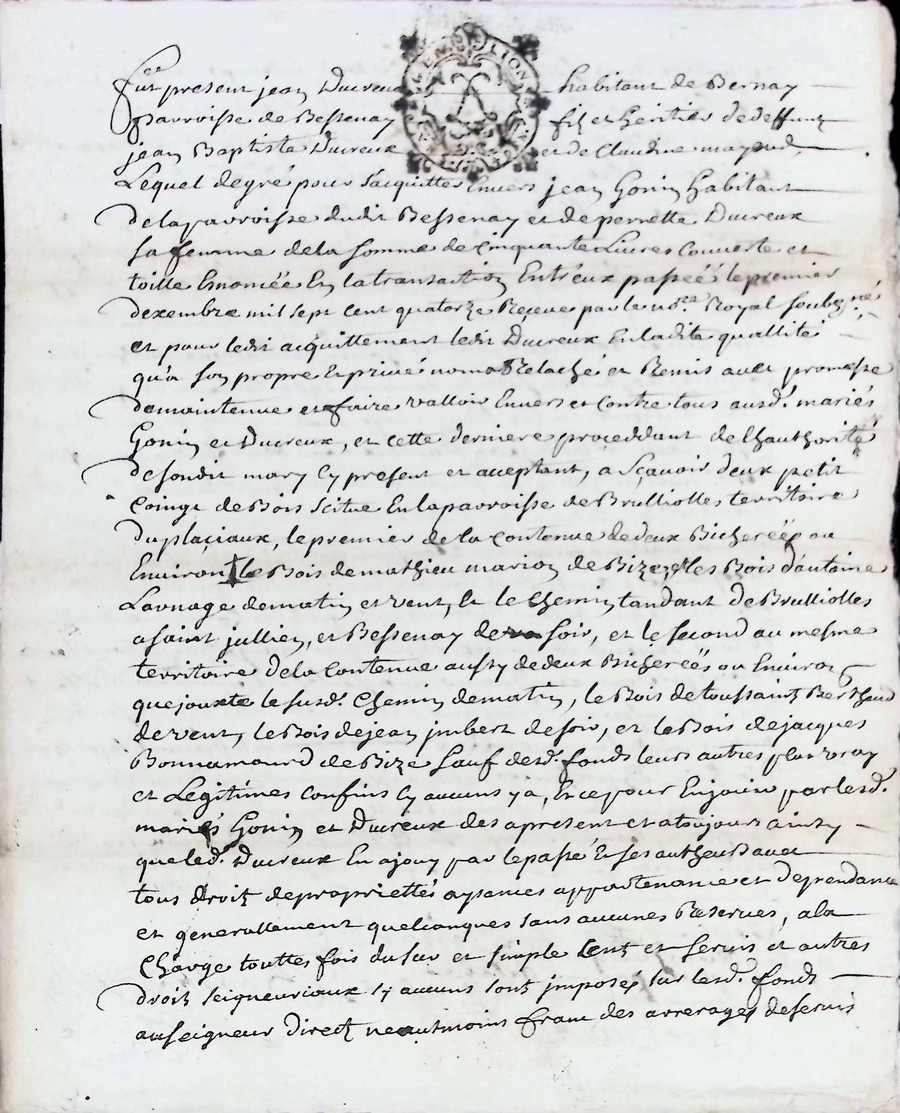 GEN LION
fut present jean Ducreux habitant de Bernay
parroisse de Bessenay fiz et heritier de deffunt
jean Baptiste Ducreux et de Claudine mayoud,
Lequel de gré pour s'acquitter Envers jean Gonin habitant
de la parroisse dudit Bessenay et de pernette Ducreux
sa femme de la somme de Cinquante Livres Couverte et
toille Enoncée En la transaction Entr'eux passéé le premier
dexembre mil sept cent quatorze Reçeue par le no.re Royal soubz.né
et pour ledit acquittement ledit Ducreux En ladite quallité
qu'a son propre Et privé nom a Relaché et Remis avec promesse
de maintenue et faire valloir Envers et Contre tous ausd. mariés
Gonin et Ducreux, et cette derniere proceddant de l'hauthorité
de sondit mary Cy present et acceptant, a sçavoir deux petit
Coingt de Bois scitue En la parroisse de Brulliolles territoire
du plaçiaux, le premier de la Contenue de deux Bicheréés ou
Environ le Bois de mathieu marion de Bize, les Bois d'antoine
Lavnage de matin et vent, et le Chemin tandant de Brulliolles
a saint jullien, et Bessenay de soir, et le second au mesme
territoire de la Contenue aussy de deux Bicheréés ou Environ
que jouxte le susd. Chemin de matin, le Bois de toussaint Berthaud
de vent, le Bois de jean jmbert de soir, et le Bois de jacques
Bonnamour de Bize sauf desd. fonds leurs autres plus vray
et Légitimes Confins Cy aucuns y a, Et ce pour En jouir par lesd.
mariés Gonin et Ducreux des apresent et a toujours ainsy
que led. Ducreux En a jouy par le passé Et ses autheurs avec
tous droit de propriettés aysances appartenance et dependance
et generallement quelconques sans aucunes Reserves, a la
Charge touttes fois du sur et simple Cent et servis et autres
droit seigneuriaux sy aucuns sont jmposés sur lesd. fonds
au seigneur direct neautmoins franc des arrerages de servis